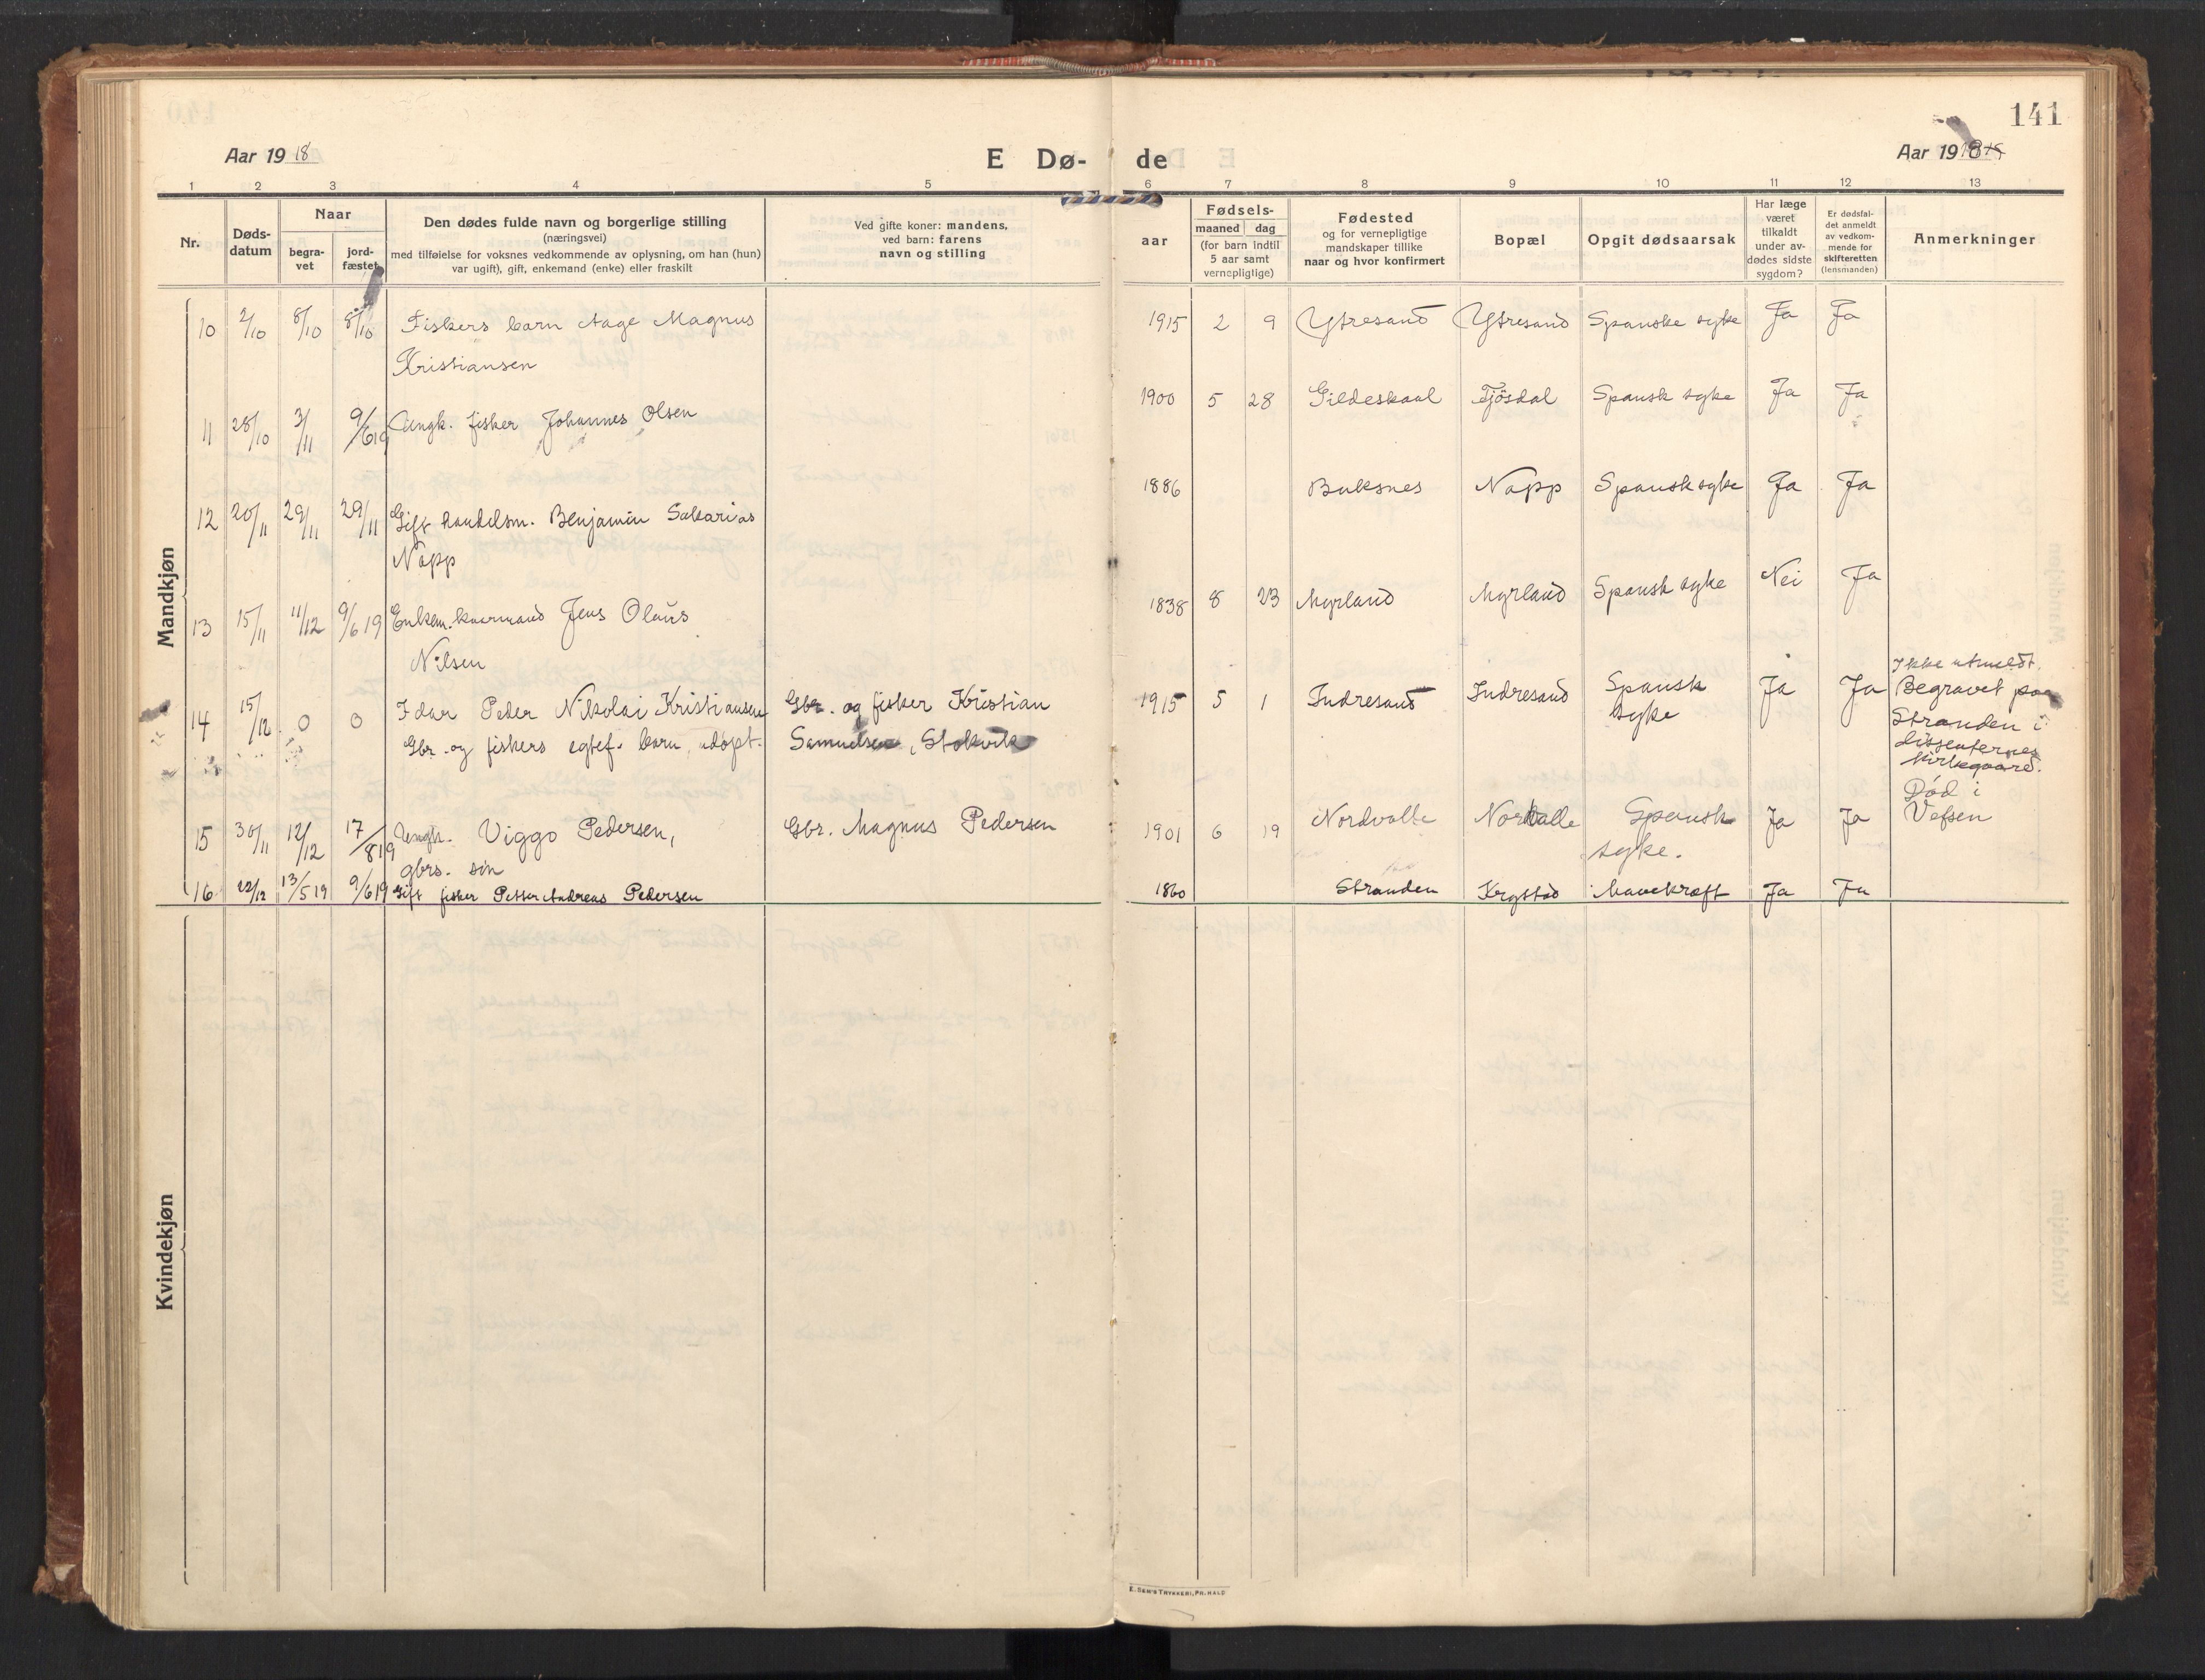 141
Aar 19 18
E Dø- de
Aar 19 18
1 2 3 4 5 6 7 8 9 10 11 12 13
Nr.
Døds-
datum
Naar
begra-
vet
jord-
fæstet
Den dødes fulde navn og borgerlige stilling
(næringsvei)
med tilføielse for voksnes vedkommende av oplysning, om han (hun)
var ugift), gift, enkemand (enke) eller fraskilt
Ved gifte koner: mandens,
ved barn: farens
navn og stilling
Fødsels-
aar
maaned dag
(for barn indtil
5 aar samt
vernepligtige)
Fødested
og for vernepligtige
mandskaper tillike
naar og hvor konfirmert
Bopæl
Opgit dødsaarsak
Har læge
været
tilkaldt
under av-
dødes sidste
sygdom?
Er dødsfal-
det anmeldt
av vedkom-
mende for
skifteretten
(lensmanden)
Anmerkninger
Mandkjøn
10 2/10 8/10 8/10 Fiskers barn Aage Magnus 1915 2 9 Ytresand Ytresand Spanske syke Ja Ja
Kristiansen
11 28/10 3/11 9/619 Ungk. fisker Johannes Olsen 1900 5 28 Gildeskaal Tjösdal Spansk syke Ja Ja
12 20/11 29/11 29/11 Gift handelsm. Benjamin Sakarias 1886 Buksnes Napp Spansk syke Ja Ja
Napp
13 15/11 11/12 9/6 19 Enkem. kaarmand Jens Olaus 1838 8 23 Myrland Myrland Spansk syke Nei Ja
Nilsen
14 15/12 0 0 Idar Peder Nikolai Kristiansen Gbr. og fisker Kristian 1915 5 1 Indresand Indresand Spansk Ja Ja Ikke utmeldt.
Gbr. og fiskers egtef. barn, adopt. Samuelsen, Stokvik syke Begravet paa
Stranden i
dissenternes
kirkegaard.
15 30/11 12/12 17/819 Ungk. Viggo Pedersen, Gbr. Magnus Pedersen 1901 6 19 Nordvalle Nordvalle Spansk Ja Ja Död i
gbrs. sön syke. Vefsen
16 22/12 13/5 19 9/619 Gift fisker Petter Andreas Pedersen 1860 Stranden Krystad Mavekræft Ja Ja
Kvindekjøn
E. SEM'S TRYKKERI, FR. HALD